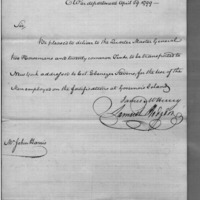 War department April 29 1799
Sir,
Be pleased to deliver to the Quarter Master General
One Marquee and twenty common Tents to be transported to
New York addressed to Col. Ebenezer Stevens for the use of the
Men employed on the fortifications at Governors Island
James McHenry
Samuel Hodgdon
Mr John Harris